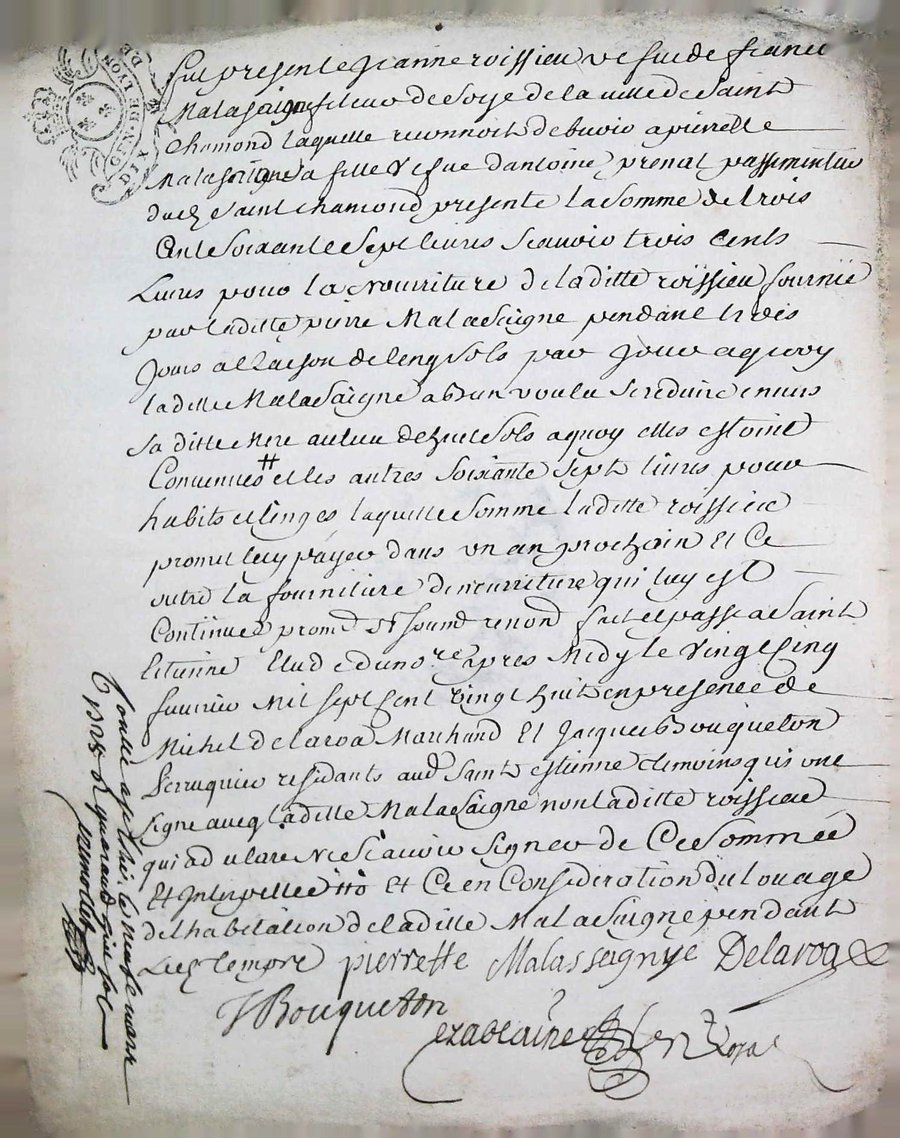 GEN. DE LYON
DIX DE
fut presente Jeanne roissieu vefue de france
Malaseigne fileur de Soye de la ville de Saint
chamond laquelle reconnoit debuoir a pierrette
Malaseigne sa fille Vefue dantoine prenat passementier
dud Saint chamond presente la Somme de trois
Cent Soixante Sept liures Scauoir trois Cents
Liures pour la Nourriture de laditte roissieu fournie
par laditte pierre Malaseigne pendant trois
Jours a Raison de Cinq Sols par Jour a quoy
laditte Malaseigne a bien voulu Se reduire enuers
Sa ditte Mere au lieu de huit Sols a quoy elles estoint
Conuenues et les autres Soixante Sept liures pour
habits et linges laquelle Somme laditte roissieu
promet luy payer dans un an prochain Et Ce
outre la fourniture de nourriture qui luy est
Continuee prom renond fait et passe a Saint
Estienne Etude du no.re apres Midy le Vingt Cinq
feurier Mil Sept Cent Vingt huit en presence de
Michel Delaroa Marchand Et Jacques Bouqueton
perruquier residants aud Saint estienne temoins qui ont
signe aueq laditte Malaseigne non laditte roissieu
qui a declare Ne Scauoir Signer de Ce Sommée
Et Interpellée Et Ce en Consideration du louage
de l'habitation de laditte Malaseigne pendant
Led tempre pierrette Malasseignye Delaroa
J Bouqueton
ezableine
Royal
Controllé a St